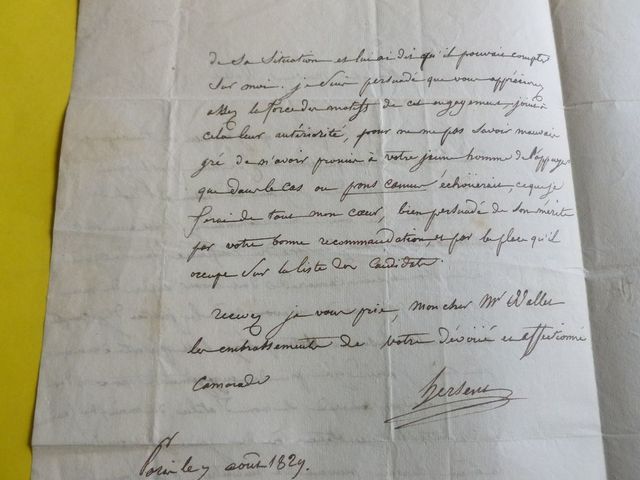 de sa situation et lui ai dit qu'il pouvait compter
sur moi. je suis persuadé que vous apprécierez
assez la force des motifs de cet engagement, joins à
cela leur antériorité, pour ne me pas savoir mauvais
gré de n'avoir promis à votre jeune homme de l'appuyer
que dans le cas ou échouerait, ce que je
ferai de tout mon cœur, bien persuadé de son mérite
par votre bonne recommandation et par la place qu'il
occupe sur la liste des candidats.
recevez je vous prie, mon cher Mr
les embrassements de votre dévoué et affectionné
Camarade
hersent
Paris le 7 août 1829.